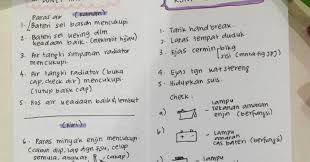 Paras air (kanan)
1. Bateri sel basah mencukupi
2. Bateri sel kering dlm
keadaan baik (indikator hijau)
3. Air tangki simpanan radiator
mencukupi
4. Air tangki radiator (buka
cap, check air) mencukupi
(tutup balik cap)
5. Hos air keadaan baik & lembut
6. Paras minyak enjin mencukupi
(cabut dip, lap dgn tisu, celup
semula,
1. Tarik hand break
2. Laras tempat duduk
3. Ejas cermin
4. Ejas tgn kat stereng
5. Hidupkan suis.
Check:
Lampu
tekanan amaran
enjin (berfungsi)
Lampu amaran
cas bateri (berfungsi)
Lampu